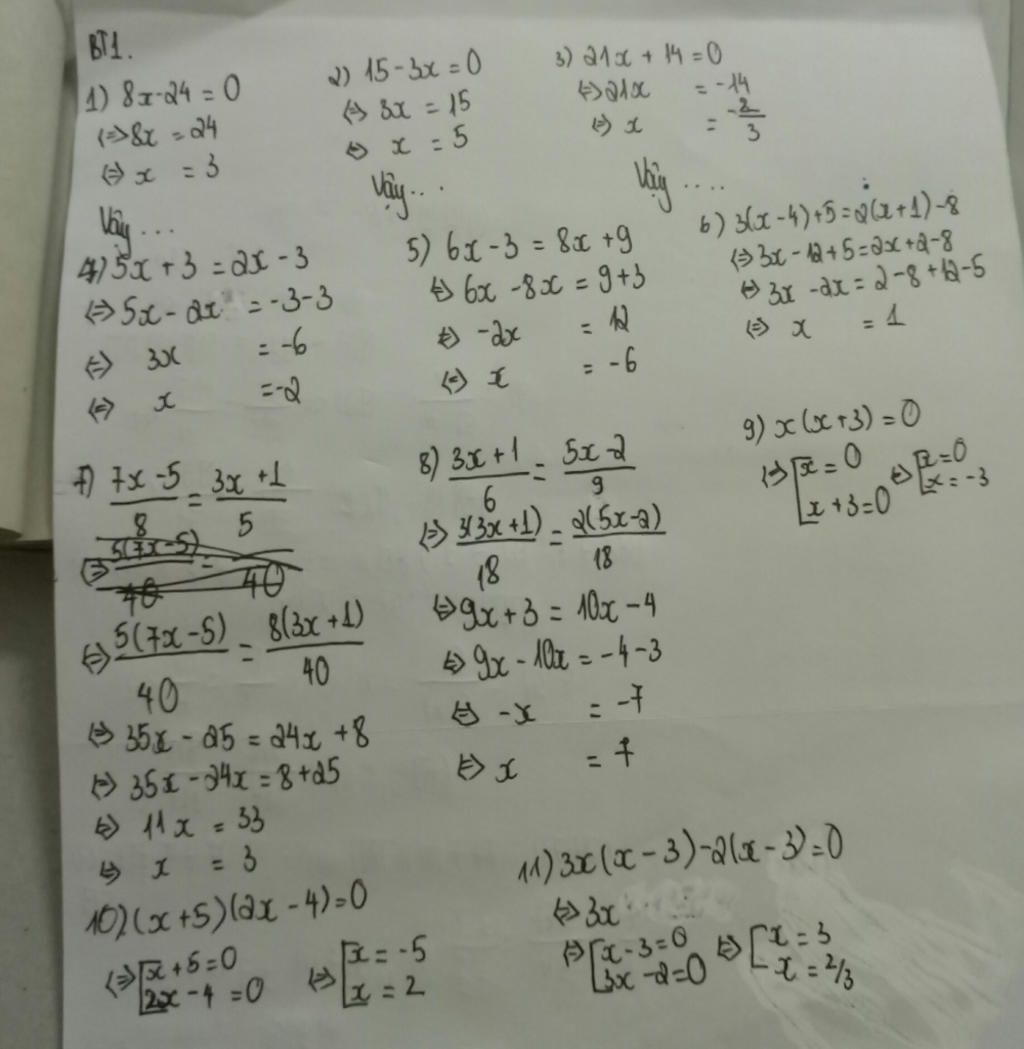 BT1.
1) 8x-24 = 0
⇔ 8x = 24
⇔ x = 3
Vậy ...
2) 15-3x = 0
⇔ 3x = 15
⇔ x = 5
Vậy ...
3) 21x + 14 = 0
⇔ 21x = -14
⇔ x = -2/3
Vậy ....
4) 5x + 3 = 2x - 3
⇔ 5x - 2x = -3-3
⇔ 3x = -6
⇔ x = -2
5) 6x - 3 = 8x + 9
⇔ 6x - 8x = 9+3
⇔ -2x = 12
⇔ x = -6
6) 3(x-4)+5 = 2(x+1)-8
⇔ 3x-12+5 = 2x+2-8
⇔ 3x-2x = 2-8+12-5
⇔ x = 1
7) (7x-5)/8 = (3x+1)/5
⇔ 5(7x-5)/40 = 8(3x+1)/40
⇔ 35x - 25 = 24x + 8
⇔ 35x - 24x = 8+25
⇔ 11x = 33
⇔ x = 3
8) (3x+1)/6 = (5x-2)/9
⇔ 3(3x+1)/18 = 2(5x-2)/18
⇔ 9x+3 = 10x-4
⇔ 9x-10x = -4-3
⇔ -x = -7
⇔ x = 7
9) x(x+3) = 0
⇔ [x = 0 ⇔ [x = 0
x+3=0 x = -3
10) (x+5)(2x-4)=0
⇔ [x+5=0 ⇔ [x = -5
2x-4=0 x = 2
11) 3x(x-3)-2(x-3)=0
⇔ 3x
⇔ [x-3=0 ⇔ [x = 3
3x-2=0 x = 2/3